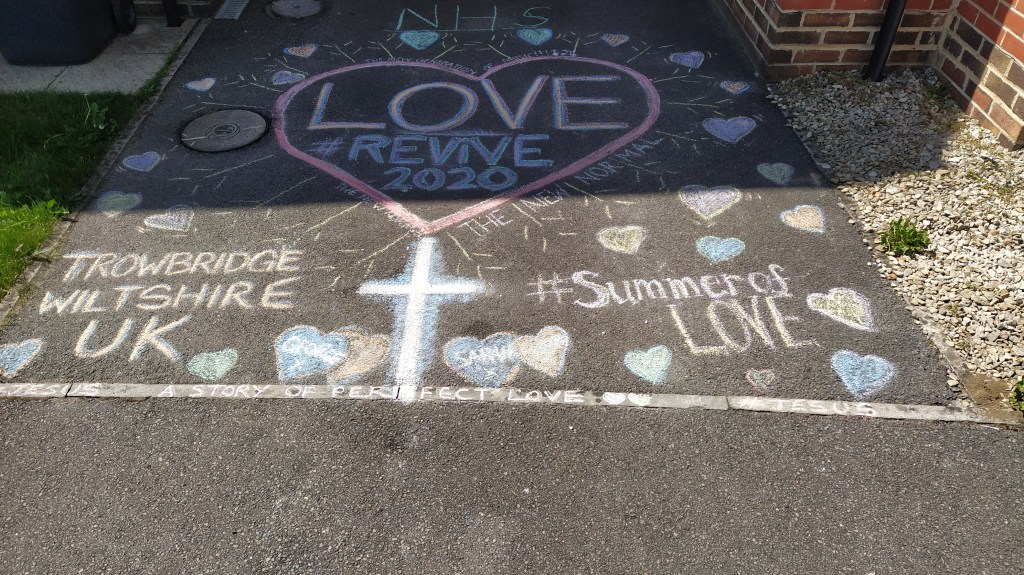 NHS
LOVE
#REVIVE
2020
THE NEW NORMAL
TROWBRIDGE
WILTSHIRE
UK
#Summer of
LOVE
JESUS A STORY OF PERFECT LOVE
#JESUS